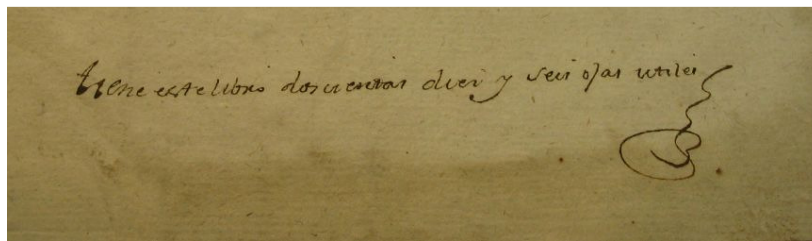 tiene este libro doscientas diez y seis ojas utiles